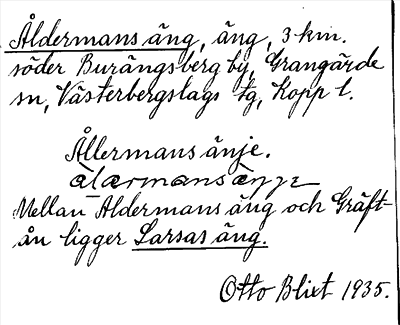 Åldermans äng, äng, 3 km.
söder Burängsberg by, Grangärde
sn, Västerbergslags tg, Kopp l.
Ållermans änje.
Mellan Åldermans äng och Gräft-
ån ligger Larsas äng.
Otto Blixt 1935.